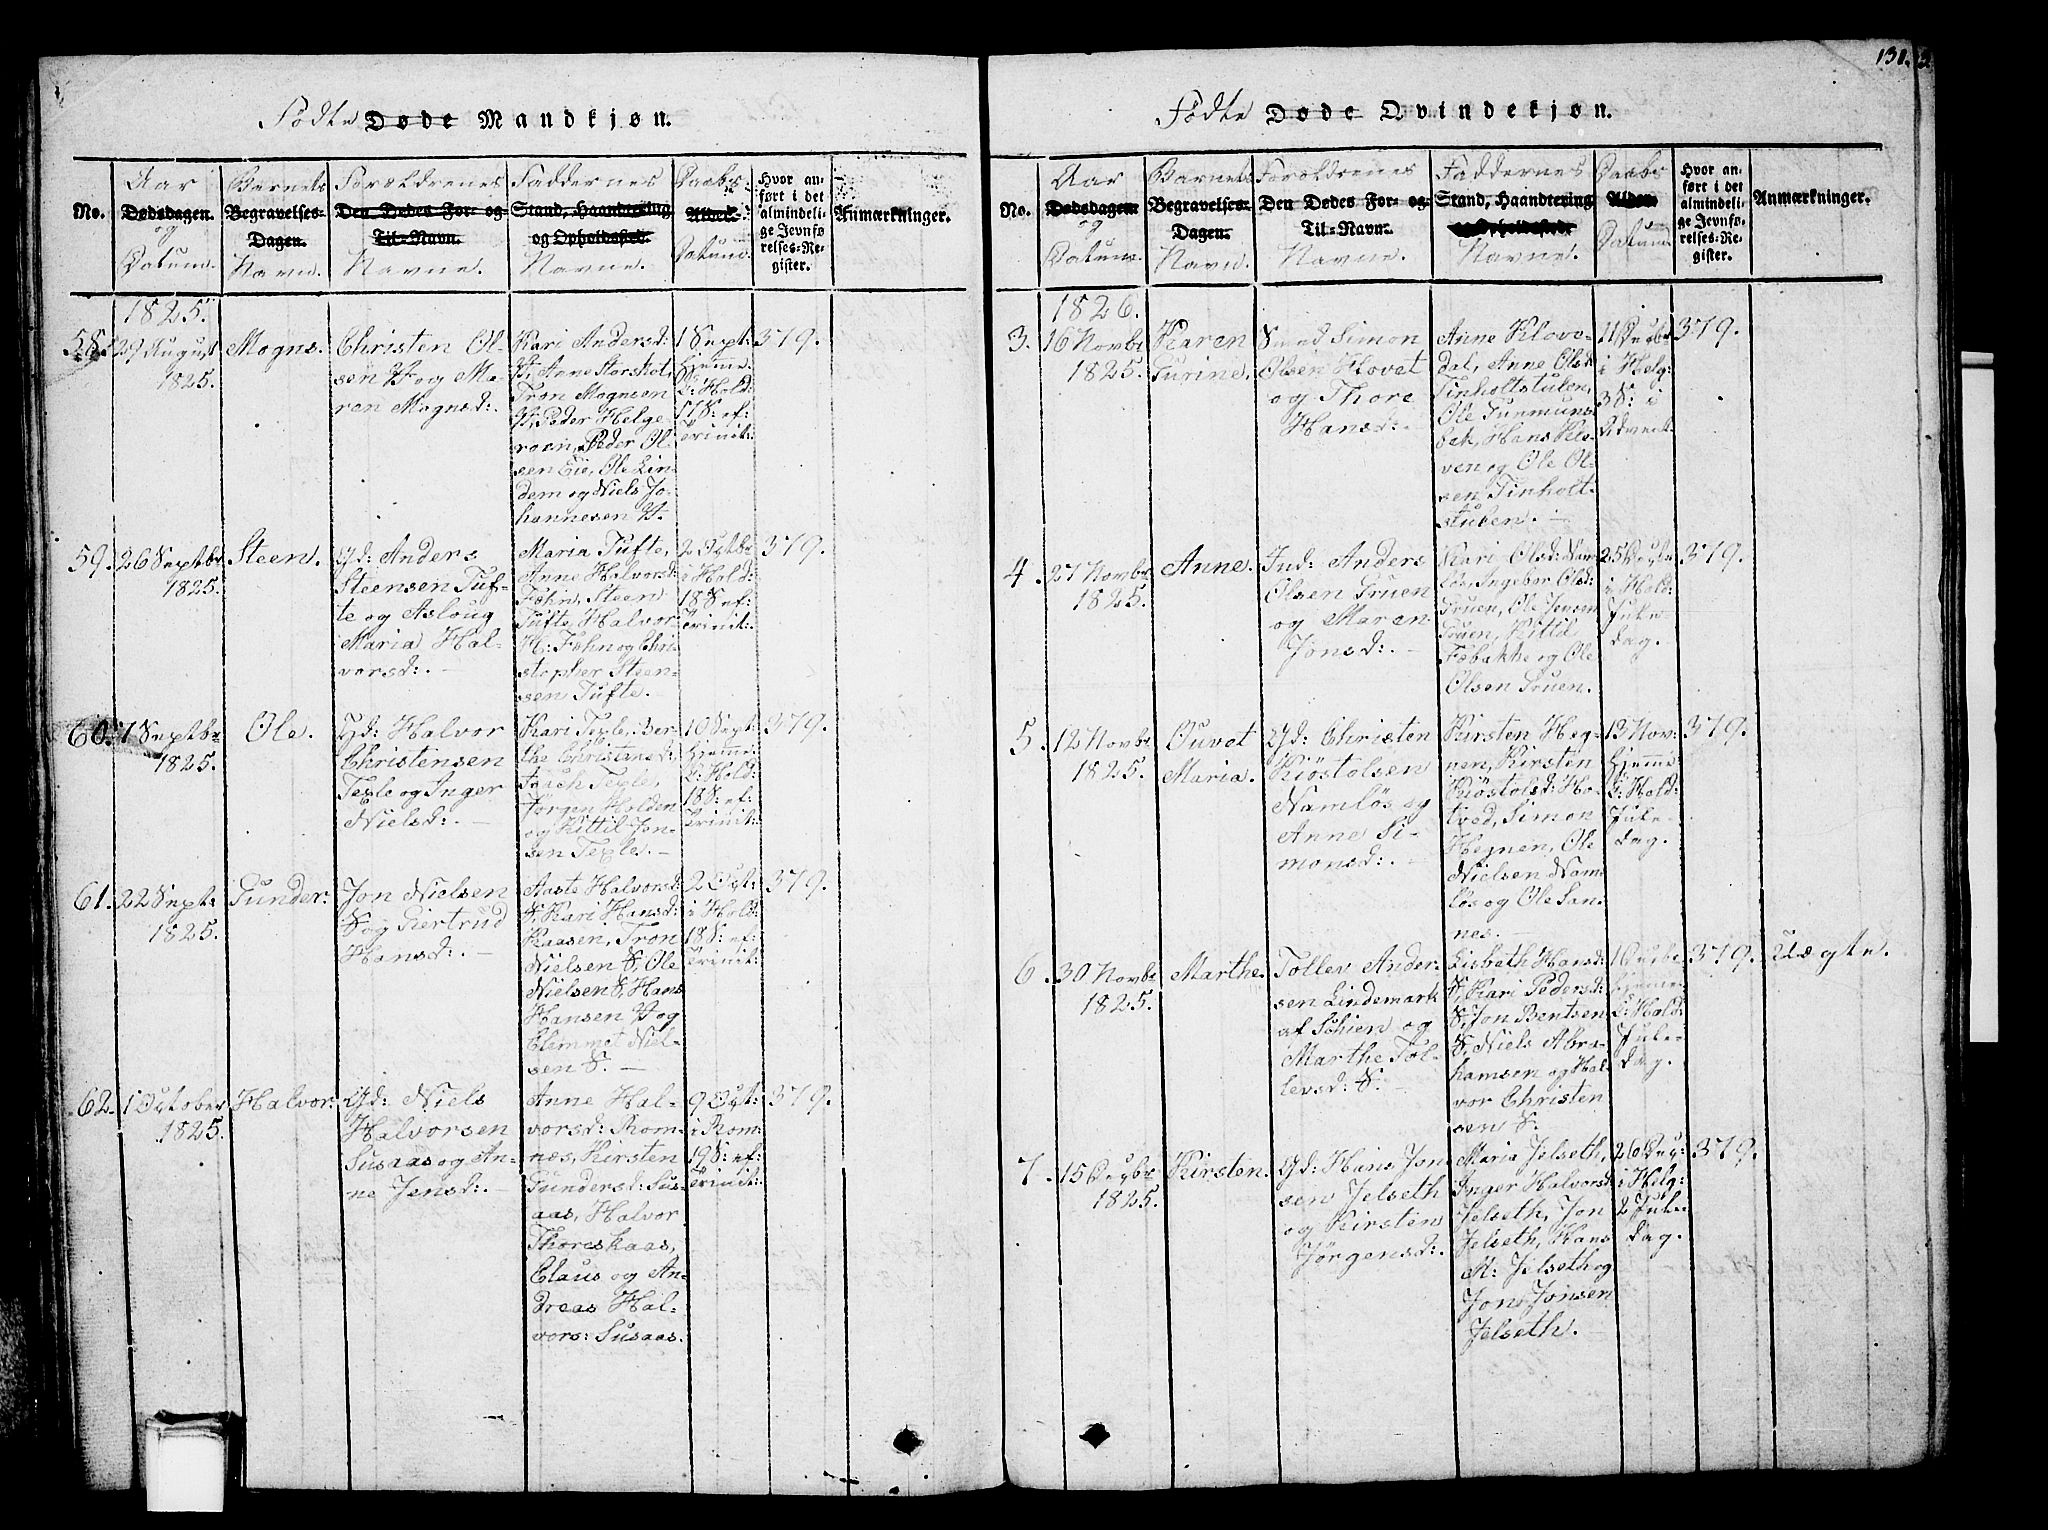 131.
Födte Døde Mandkjøn.
No.
Aar
Dødsdagen.
og
Datum.
Barnets
Begravelses-
Dagen.
Navn.
Forældrenes
Den Dødes For- og
Til-Navn.
Navne.
Faddernes
Stand, Haandtering
og Opholdssted.
Navne.
Daabs
Alder.
Datum.
Hvor an-
ført i det
almindeli-
ge Jevnfø-
relses-Re-
gister.
Anmærkninger.
1825.
58.
29 August
1825.
Mogns.
Christen Ol-
sen H og Ma-
ren Mognsd:.
Kari Andersd:
H, Anne Storskot,
Tron Mognsen
H, Peder Helge-
roen, Peder Ol-
sen Eie, Ole Lin-
dem og Niels Jo-
hannesen H.
1 Sept:
hjemme.
i Hold:
17 S: ef:
Trinit:
379.
59.
26 Septbr
1825.
Steen.
Gd: Anders
Steensen Tuf-
te og Asloug
Maria Hal-
vorsd:. —
Maria Tufte,
Anne Halvorsd:
Fæhn, Steen
Tufte, Halvor
H: Fæhn og Chri-
stopher Steen-
sen Tufte. —
2 Octbr
i Hold:
18 S ef:
Trinit:
379.
60.
7 Septbr
1825.
Ole.
Gd: Halvor
Christensen
Texle og Inger
Nielsd:. —
Kari Texle, Ber-
the Christensd:,
Texle,
Jørgen Holden
og Kittil Jon-
sen Texle. —
10 Sept
hjemme
i Hold:
18 S: ef:
Trinit:
379.
61.
22 Sept:
1825.
Gunder.
Jon Nielsen
S og Giertrud
Hansd:. —
Aaste Halvorsd:
S, Kari Hansd:
Kaasen, Tron
Nielsen S, Ole
Nielsen S, Hans
Hansen H og
Clemmet Niel-
sen S. —
2 Oct:
i Hold:
18 S: ef:
Trinit:
379.
62.
1 October
1825.
Halvor.
Gd: Niels
Halvorsen
Susaas og An-
ne Jensd:. —
Anne Hal-
vorsd: Rom-
næs, Kirsten
Gundersd: Sus-
aas, Halvor
Thoreskaas,
Claus og An-
dreas Hal-
vors: Susaas.
9 Oct:
i Rom:
19 S: ef:
Trinit:
379.
Födte Døde Qvindekjøn.
No.
Aar
Dødsdagen.
og
Datum.
Barnets
Begravelses-
Dagen.
Navn.
Forældrenes
Den Dødes For- og
Til-Navn.
Navne.
Faddernes
Stand, Haandtering
og Opholdssted.
Navne.
Daabs
Alder.
Datum.
Hvor an-
ført i det
almindeli-
ge Jevnfø-
relses-Re-
gister.
Anmærkninger.
1826.
3.
16 Novbr
1825.
Karen
Turine.
Smed Simon
Olsen Hovet
og Thore
Hansd:. —
Anne Klove-
dal, Anne Olsd:
Tinholtstulen,
Ole Turmuns-
bek, Hans Kle-
ven og Ole Ol-
sen Tinholt-
stulen. —
11 Decbr
i Helg:
3 S: i
Advent.
379.
4.
27 Novbr
1825.
Anne.
Ind: Anders
Olsen Gruen
og Maren
Jonsd:. —
Kari Olsd: Nam-
løs, Ingebor Olsd:
Gruen, Ole Jensen
Gruen, Kittil
Fæbakke og Ole
Olsen Gruen.
25 Decbr
i Hold:
Jule-
dag.
379.
5.
12 Novbr
1825.
Ouvet
Maria.
Gd: Christen
Kiöstolsen
Namlös og
Anne Si-
monsd:. —
Kirsten Heg-
nen, Kirsten
Kiöstolsd: Ho-
tved, Simon
Hegnen, Ole
Nielsen Nam-
løs og Ole San-
nes. —
13 Nov:
hjemme
i Hold:
Jule-
dag.
379.
6.
30 Novbr
1825.
Marthe.
Tollev Ander-
sen Lindemark
af Schien og
Marthe Tol-
levsd: S. —
Lisbeth Hansd:
S, Kari Pedersd:
S, Jon Bentsen
S, Niels Abra-
hamsen og Hal-
vor Christen-
sen S.
1 Decbr
hjemme
i Hold:
Jule-
dag.
379.
Uægte.
7.
15 Decbr
1825.
Kirsten.
Gd: Hans Jon-
sen Jelseth
og Kirsten
Jörgensd:.
Maria Jelseth,
Inger Halvorsd:
Jelseth, Jon
Jelseth, Hans
M: Jelseth og
Jon Jonsen
Jelseth. —
26 Dec:
i Helg:
2 Jule-
dag.
379.